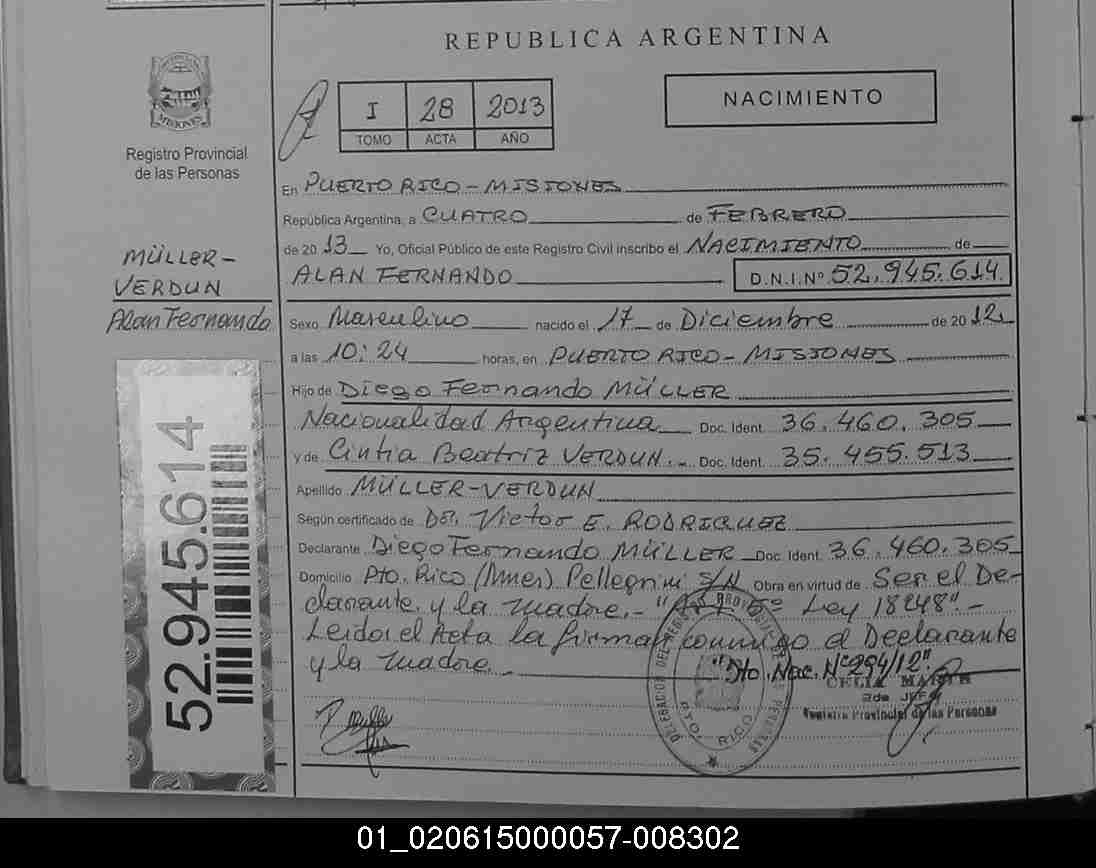 REPUBLICA ARGENTINA
MISIONES
Registro Provincial
de las Personas
I 28 2013
TOMO ACTA AÑO
NACIMIENTO
En PUERTO RICO - MISIONES
República Argentina, a CUATRO de FEBRERO
de 2013 Yo, Oficial Público de este Registro Civil inscribo el NACIMIENTO de
ALAN FERNANDO D.N.I.Nº 52.945.614
MÜLLER-
VERDUN
Alan Fernando
Sexo Masculino nacido el 17 de Diciembre de 2012.
a las 10:24 horas, en PUERTO RICO - MISIONES
Hijo de Diego Fernando MÜLLER
Nacionalidad Argentina Doc. Ident. 36.460.305
y de Cintia Beatriz VERDUN. Doc. Ident. 35.455.513
Apellido MÜLLER-VERDUN
Según certificado de Dr. Victor E. RODRIGUEZ
Declarante Diego Fernando MÜLLER Doc. Ident. 36.460.305
Domicilio Pto. Rico (Mnes) Pellegrini S/N Obra en virtud de Ser el De-
clarante y la madre.- "Art 5º Ley 18248".-
Leida el Acta la firman conmigo el Declarante
y la madre. "Dto. Nac. Nº 294/12"
CELIA
2da JEFA
Registro Provincial de las Personas
PTO. RICO
52.945.614
01_020615000057-008302